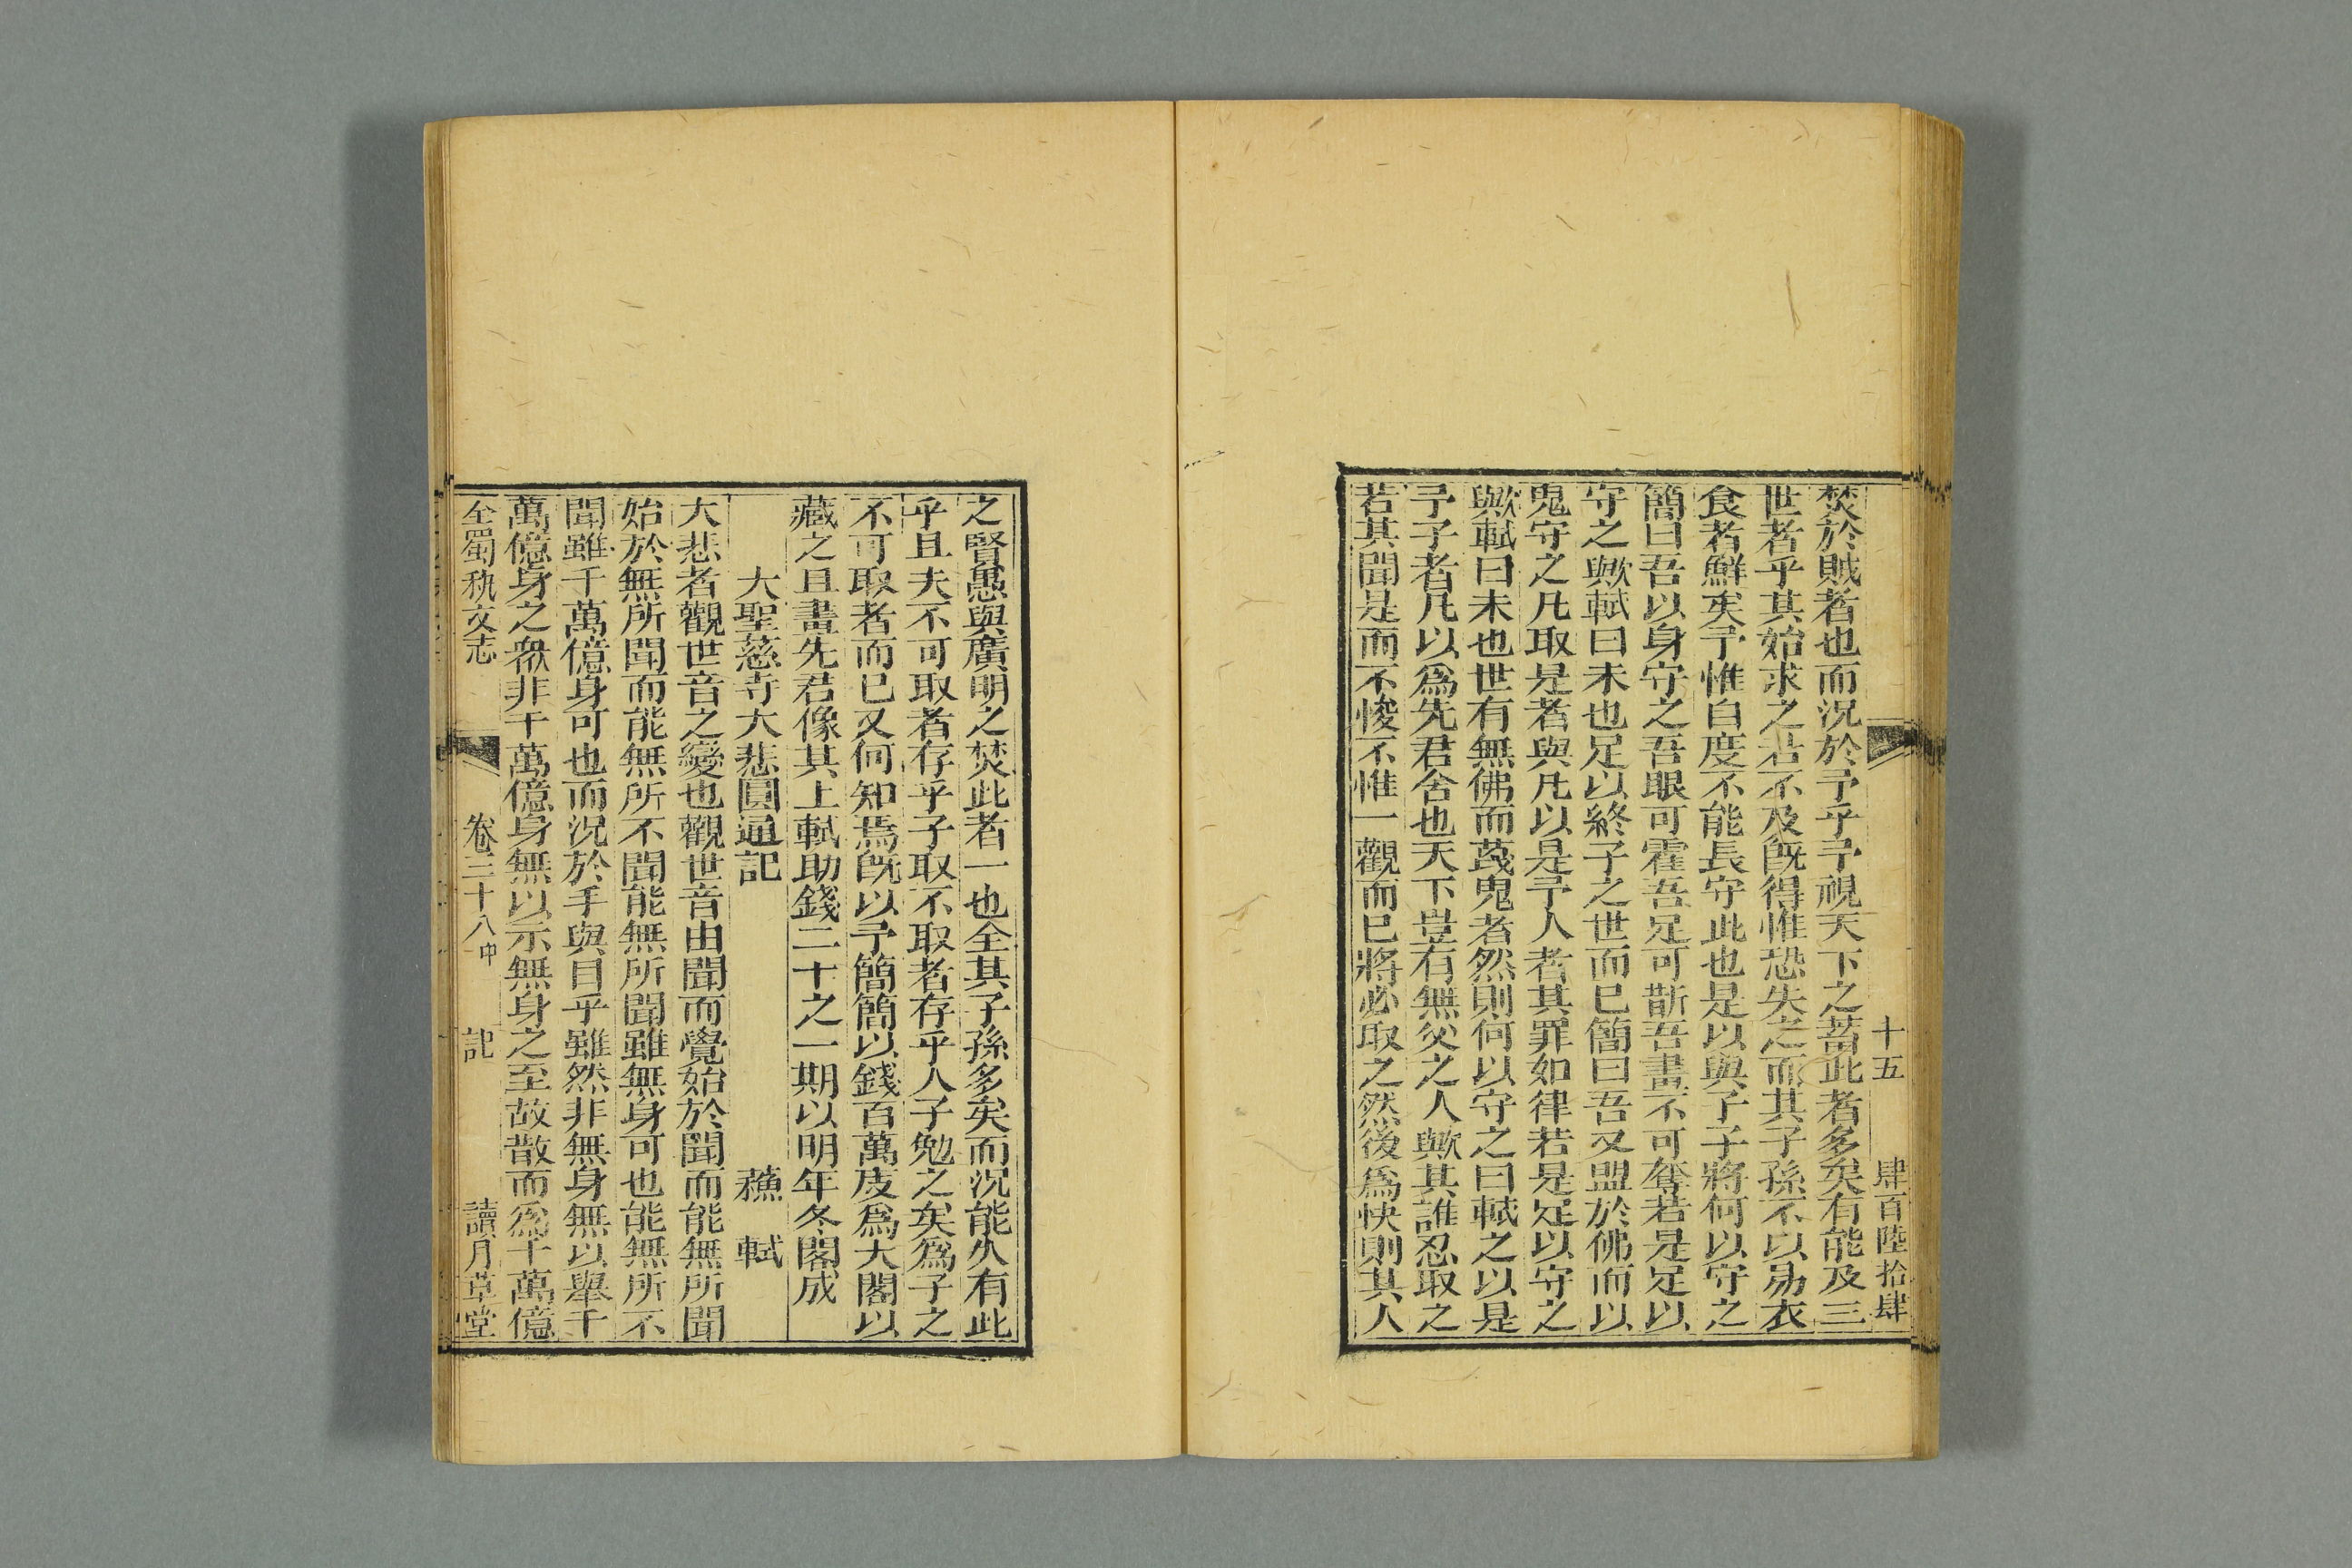 十五 肆百陸拾肆
焚於賊者也而況於予乎予視天下之蓄此者多矣有能及三
世者乎其始求之若不及旣得惟恐失之而其子孫不以易衣
食者鮮矣予惟自度不能長守此也是以與子子將何以守之
簡曰吾以身守之吾眼可霍吾足可斮吾畫不可奪若是足以
守之歟軾曰未也足以終子之世而已簡曰吾又盟於佛而以
鬼守之凡取是者與凡以是予人者其罪如律若是足以守之
歟軾曰未也世有無佛而蔑鬼者然則何以守之曰軾之以是
予子者凡以爲先君舍也天下豈有無父之人歟其誰忍取之
若其聞是而不悛不惟一觀而已將必取之然後爲快則其人
之賢愚與廣明之焚此者一也全其子孫多矣而況能久有此
乎且夫不可取者存乎子取不取者存乎人子勉之矣爲子之
不可取者而已又何知焉旣以予簡簡以錢百萬度爲大閣以
藏之且畫先君像其上軾助錢二十之一期以明年冬閣成
大聖慈寺大悲圓通記 蘇軾
大悲者觀世音之變也觀世音由聞而覺始於聞而能無所聞
始於無所聞而能無所不聞能無所聞雖無身可也能無所不
聞雖千萬億身可也而況於手與目乎雖然非無身無以舉千
萬億身之衆非千萬億身無以示無身之至故散而爲千萬億
全蜀秇文志 卷三十八中 記 讀月草堂